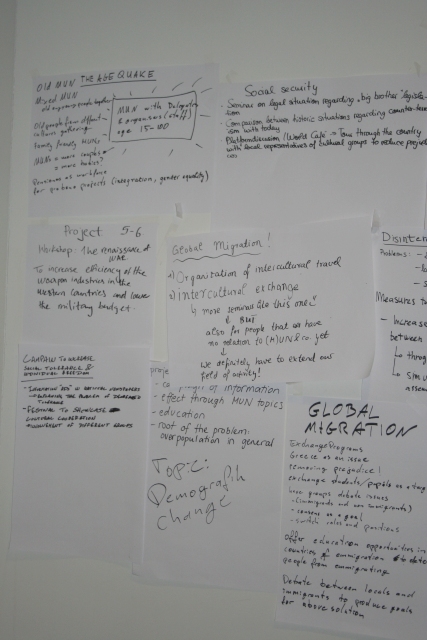 OLD MUN THE AGE QUAKE
Mixed MUN
old + young people together
Old people from different
cultures gathering
Family friendly MUNs
MUNs = more couples
= more babies?
Pensioners as workforce
for projects (integration, gender equality)
MUN with Delegates
& organisers (staff)
age 15-100
Social security
- Seminar on legal situation regarding "big brother" legisla-
tion
- Comparison between historic situations regarding counter-terror-
ism with today
- Platform discussion (World Café → Tour through the country
with local representatives of cultural groups to reduce prejud-
ices
Project 5-6
Workshop: The renaissance of
war
To increase efficiency of the
weapon industries in the
western countries and lower
the military budget.
Global Migration!
1) Organization of intercultural travel
2) intercultural exchange
↳ more seminars like this one!
& BUT
also for people that we have
no relation to (M)UN &co yet
↓
we definitely have to extend our
field of activity!
Disinten
Problems:
Measures to
- Increase
between
→ throug
→ Simu
assem
TOLERANCE
SOCIAL TOLERANCE &
INDIVIDUAL FREEDOM
- EXPLAINING THE PROBLEM OF
TOLERANCE
- FESTIVAL TO SHOWCASE
CULTURAL COOPERATION
proje
of information
- effect through MUN topics
- education
- root of the problem:
overpopulation in general
Topic:
Demograph
change
GLOBAL
MIGRATION
Exchange Programs
Greece as an issue
removing prejudice!
exchange students/people as a tag
have groups debate issues
(immigrants and non immigrants)
- consens as a goal
- switch roles and positions
Offer education opportunities in
countries of emmigration to deter
people from emmigrating
Debate between locals and
immigrants to produce goals
for above solution